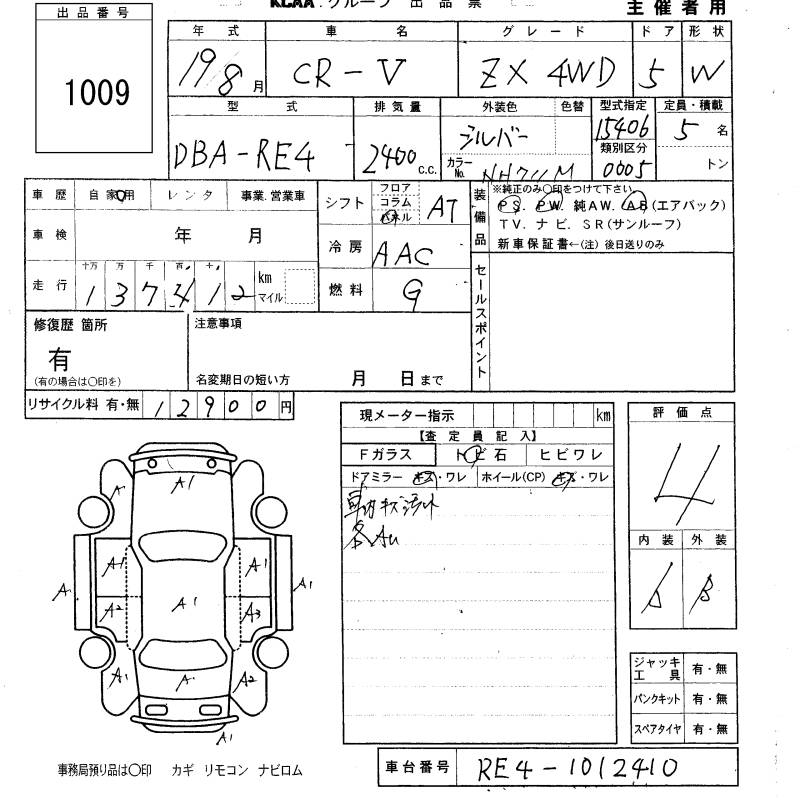 KCAA グループ 出品票
主催者用
出品番号
1009
年式 車名 グレード ドア 形状
19/8月 CR-V ZX 4WD 5 W
型式 排気量 外装色 色替 型式指定 定員・積載
DBA-RE4 2400 c.c. シルバー 15406 5名
カラーNo. NH711M 類別区分 0005 トン
車歴 自家用 レンタ 事業.営業車
車検 年 月
走行 十万 万 千 百 十 1 3 7 4 1 2 km マイル
シフト フロア コラム パネル AT
冷房 AAC
燃料 G
装備品
※純正のみ〇印をつけて下さい
PS. PW. 純AW. AB(エアバック)
TV. ナビ. SR(サンルーフ)
新車保証書←(注) 後日送りのみ
セールスポイント
修復歴 箇所
有
(有の場合は〇印を)
注意事項
名変期日の短い方 月 日まで
リサイクル料 有・無 1 2 9 0 0 円
現メーター指示 km
【査定員記入】
Fガラス トビ石 ヒビワレ
ドアミラー キズ・ワレ ホイール(CP) キズ・ワレ
車内キズ汚れ
各AU
評価点
4
内装 外装
A B
A A1
A1 A1
A A1
A2 A1 A3
A1 A A2
A1
ジャッキ工具 有・無
パンクキット 有・無
スペアタイヤ 有・無
事務局預り品は〇印 カギ リモコン ナビロム
車台番号 RE4-1012410